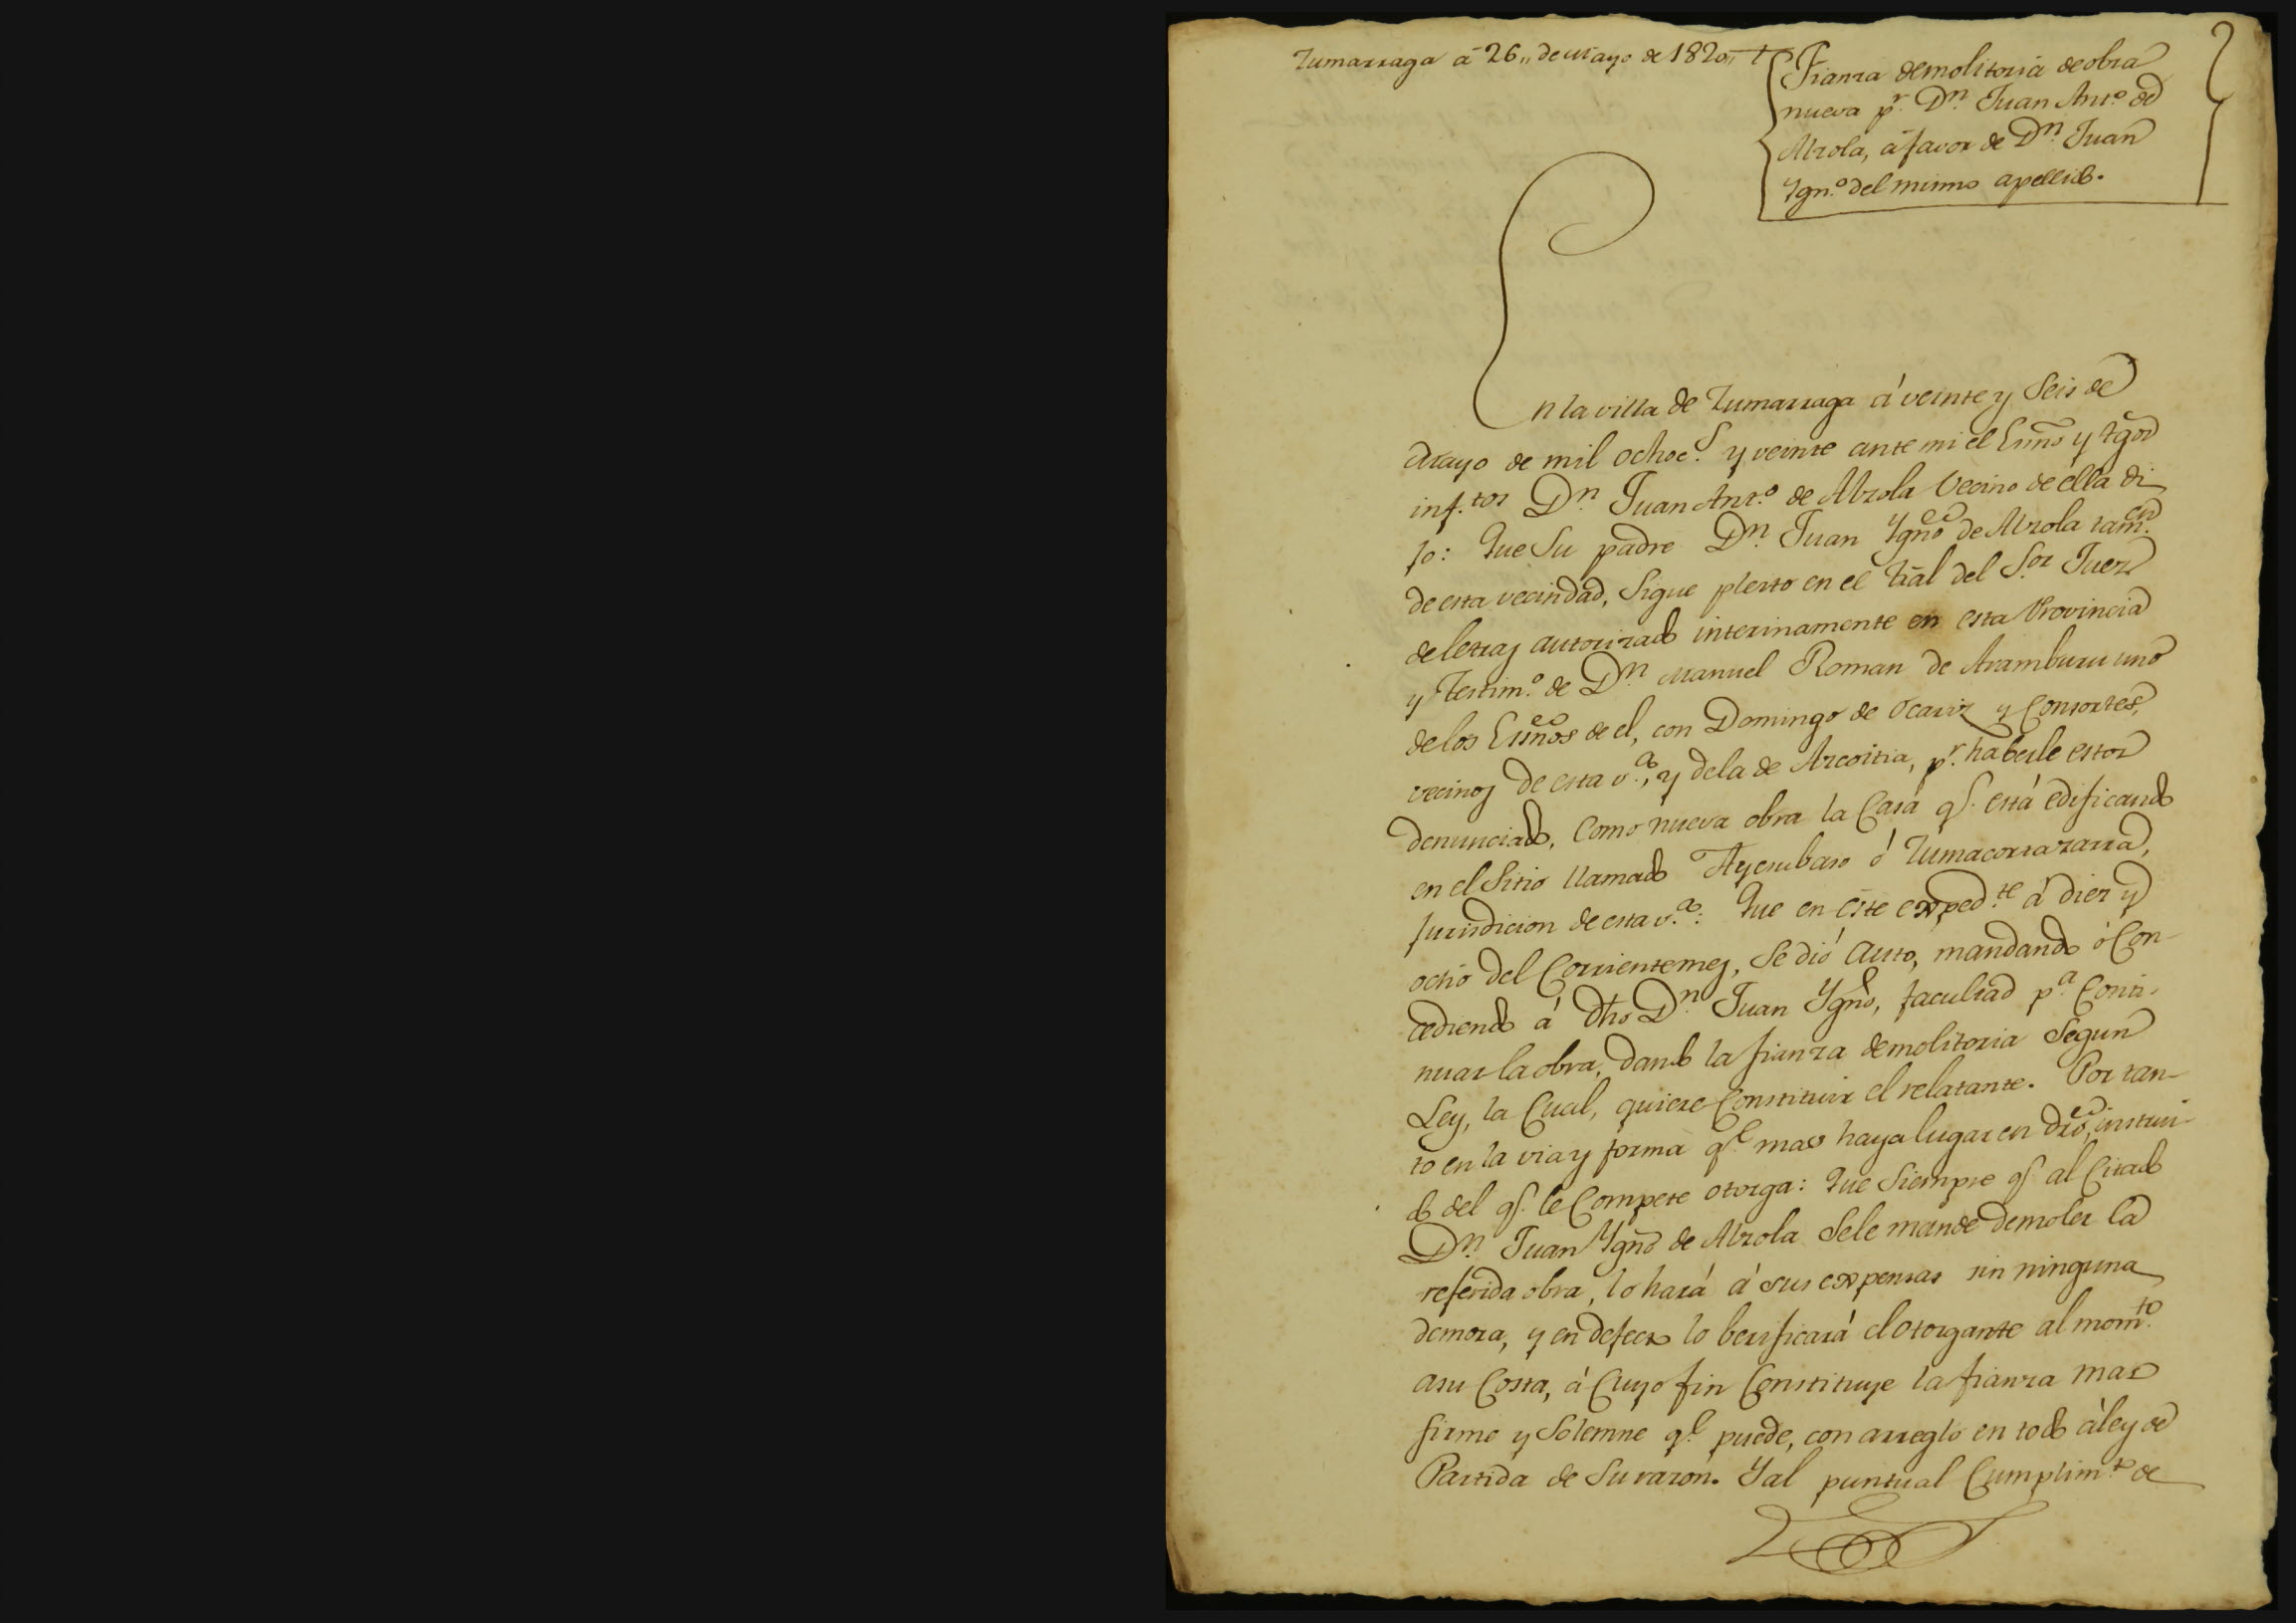 Zumarraga á 26,, de Mayo de 1820,,
Fianza demolitoria de obra
nueva pr. Dn. Juan Anto. de
Alzola, á favor de Dn. Juan
Ygno. del mismo apellido.
En la villa de Zumarraga á veinte y Seis de
Mayo de mil ochocs. y veinte ante mi el Essno y tgos
inf.tos Dn. Juan Anto. de Alzola Vecino de ella di
jo: Que Su padre Dn. Juan Ygno de Alzola tamn.
de esta vecindad, Sigue pleito en el Tral del Sor. Juez
de letras autorizado interinamente en esta Provincia
y Testimo. de Dn. Manuel Roman de Aramburu uno
de los Essnos de el, con Domingo de Ocariz y Consortes,
vecinos de esta va., y dela de Azcoitia, pr. haberle estos
denunciado, Como nueva obra la Casa qe. está edificando
en el Sitio llamado Zumacorrazarra,
Jurisdicion de esta va.: Que en este expedte. á diez y
ocho del Corriente mes, Se dió Auto, mandando ó Con-
cediendo á dho Dn. Juan Ygno, facultad pa. Conti-
nuar la obra, dando la fianza demolitoria Segun
Ley, la Cual, quiere Constituir el relatante. Por tan-
to en la via y forma qe. mas haya lugar en dro, instrui-
do del qe. le Compete otorga: Que Siempre qe. al Citado
Dn. Juan Ygno de Alzola Sele mande demoler la
referida obra, lo hará á sus expensas sin ninguna
demora, y en defecto lo berificará el Otorgante al momto.
asu Costa, á Cuyo fin Constituye la fianza mas
firme y Solemne qe. puede, con arreglo en todo á ley de
Partida de Su razon. Y al puntual Cumplimto. de